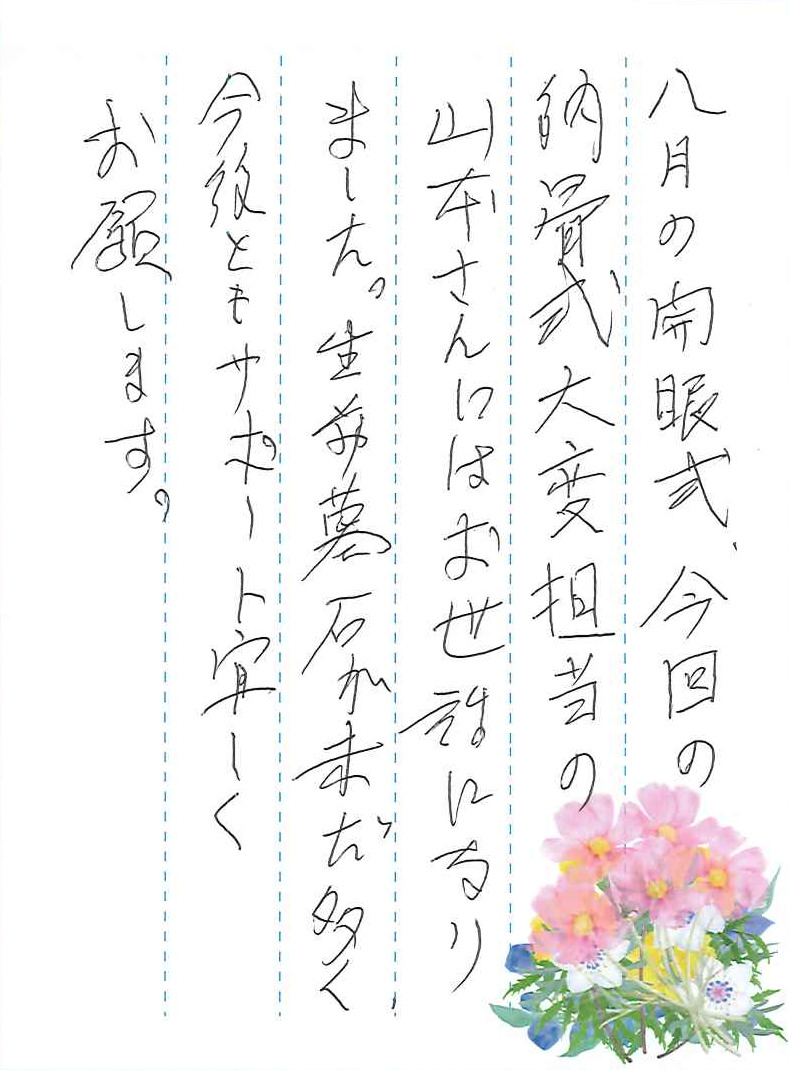 八月の開眼式、今回の
納骨式大変担当の
山本さんにはお世話になり
ました。生前墓石が未だ多く、
今後ともサポート宜しく
お願します。